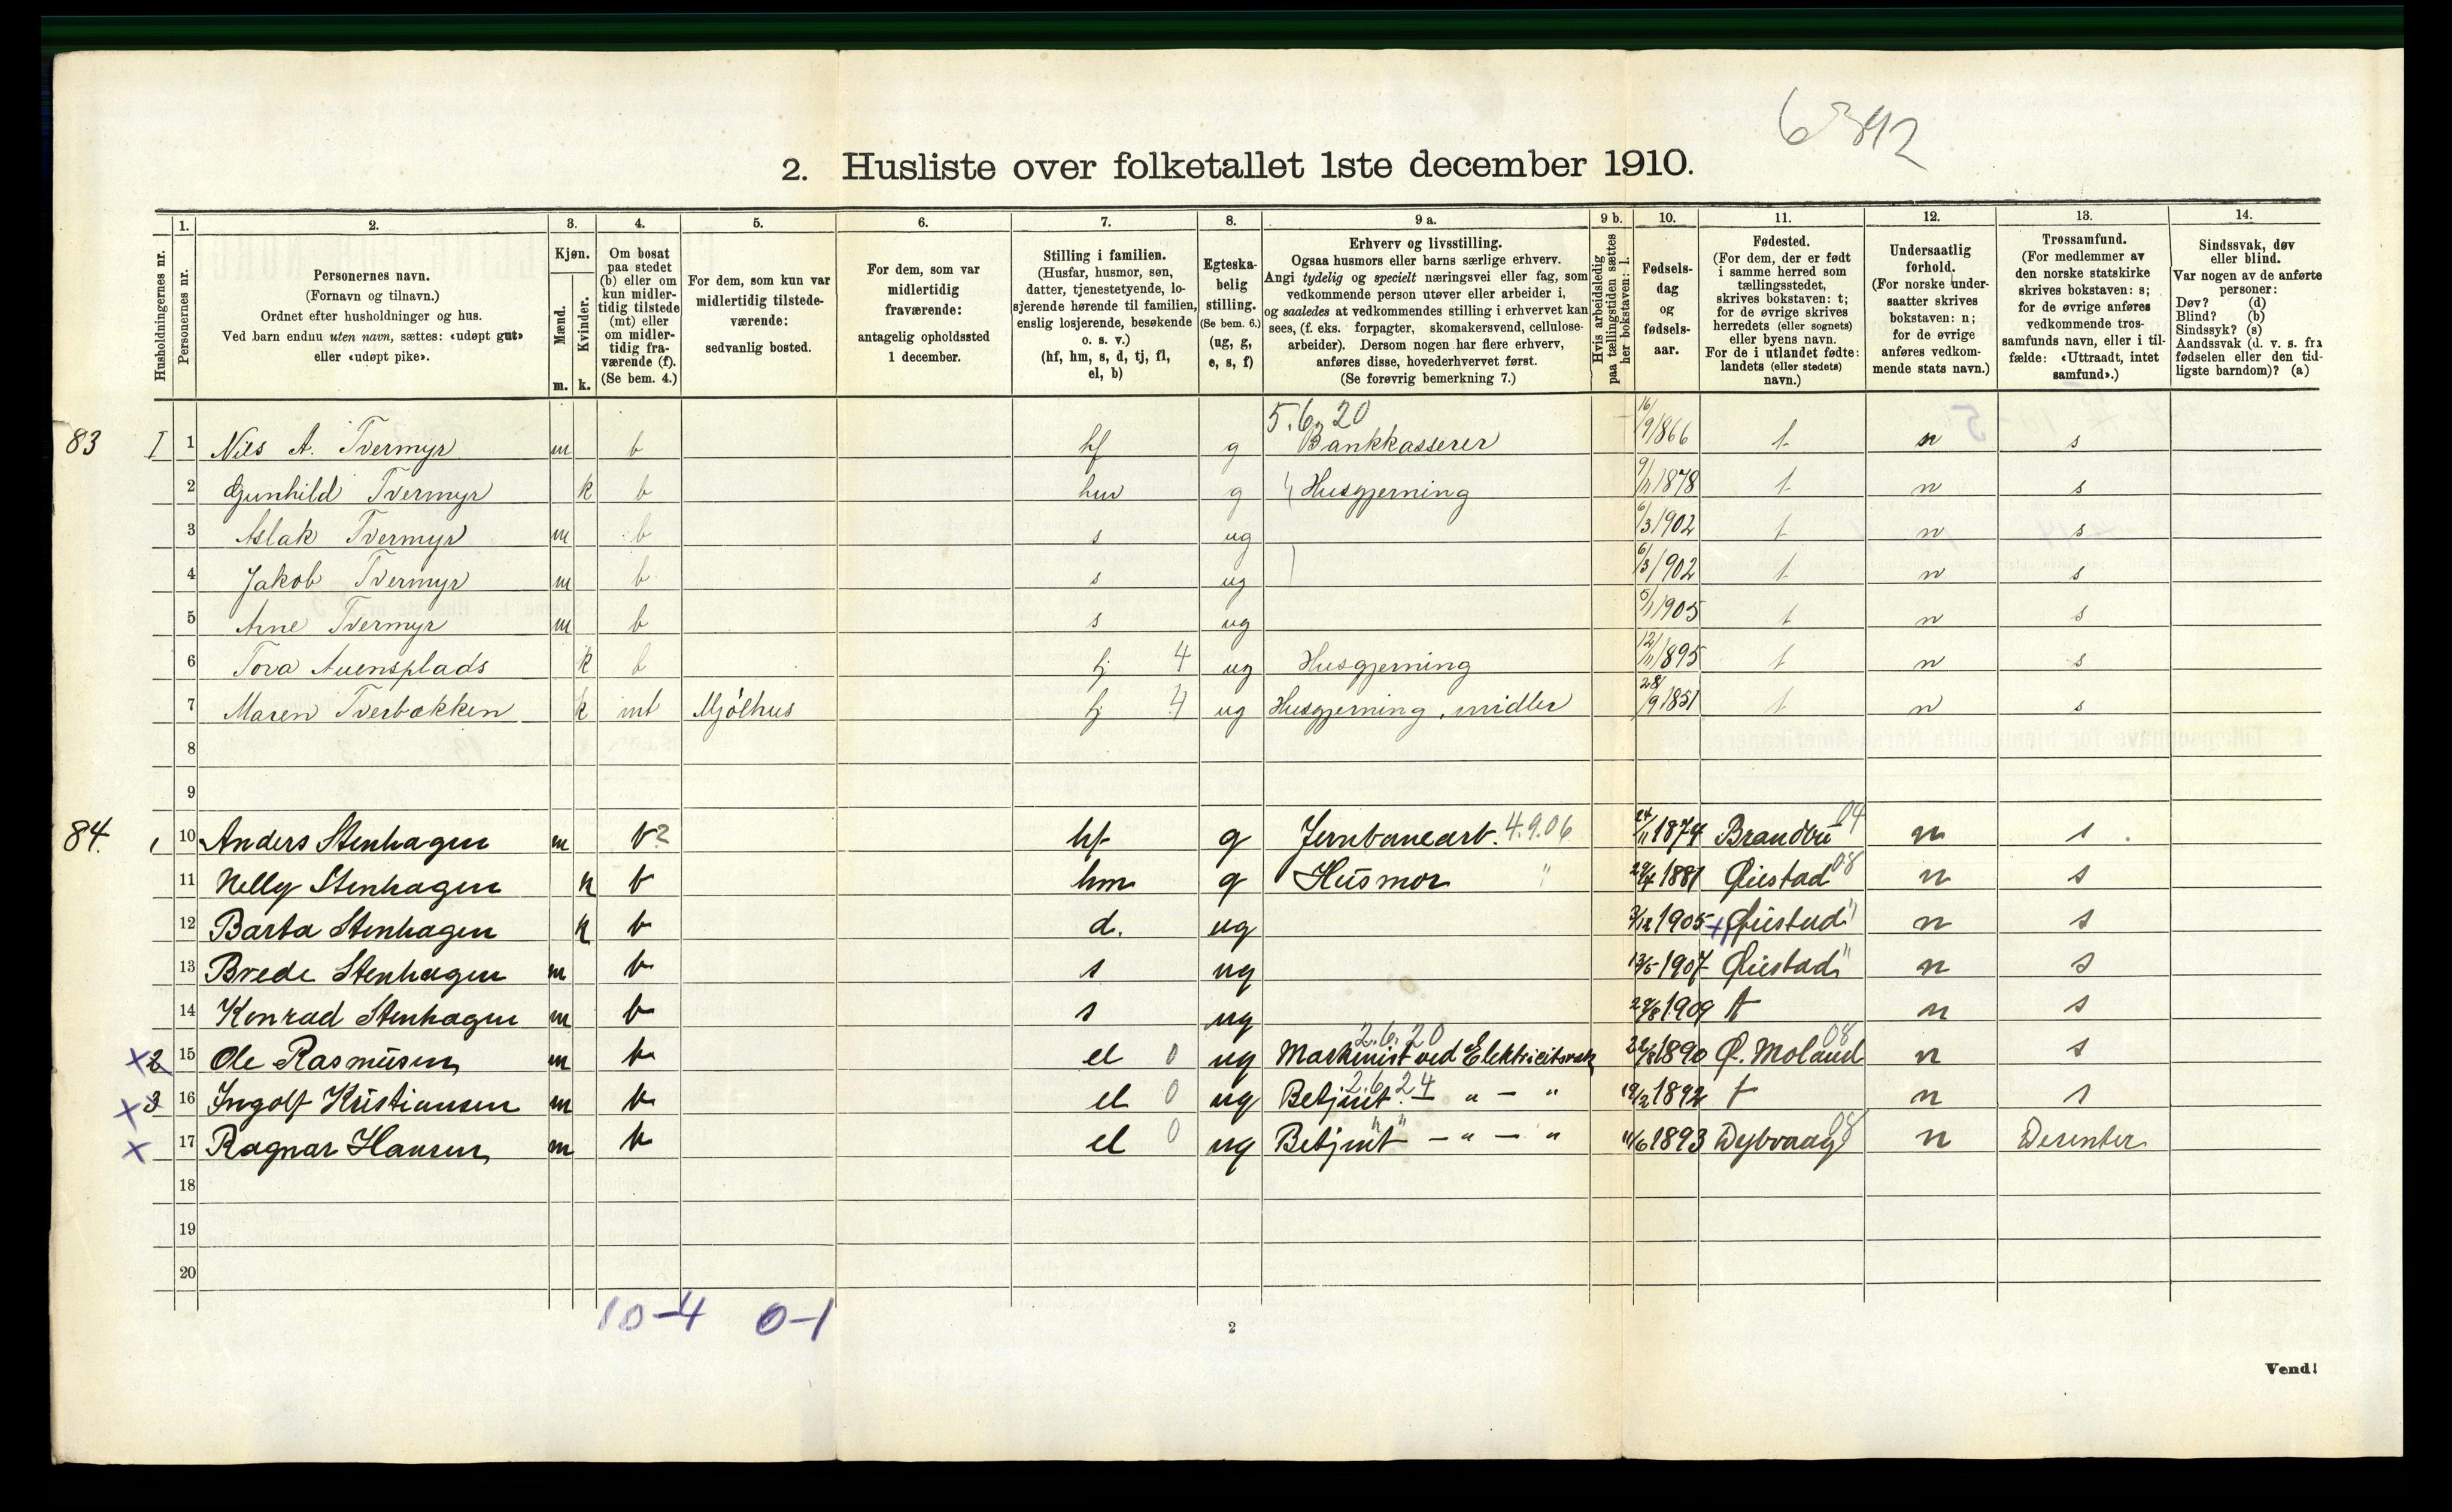 6392
2. Husliste over folketallet 1ste december 1910.
Husholdningernes nr.
1. Personernes nr.
2. Personernes navn. (Fornavn og tilnavn.) Ordnet efter husholdninger og hus. Ved barn endnu uten navn, sættes: «udøpt gut» eller «udøpt pike».
3. Kjøn. Mænd. m. Kvinder. k.
4. Om bosat paa stedet (b) eller om kun midlertidig tilstede (mt) eller om midlertidig fraværende (f). (Se bem. 4.)
5. For dem, som kun var midlertidig tilstedeværende: sedvanlig bosted.
6. For dem, som var midlertidig fraværende: antagelig opholdssted 1 december.
7. Stilling i familien. (Husfar, husmor, søn, datter, tjenestetyende, losjerende hørende til familien, enslig losjerende, besøkende o. s. v.) (hf, hm, s, d, tj, fl, el, b)
8. Egteskabelig stilling. (Se bem. 6.) (ug, g, e, s, f)
9 a. Erhverv og livsstilling. Ogsaa husmors eller barns særlige erhverv. Angi tydelig og specielt næringsvei eller fag, som vedkommende person utøver eller arbeider i, og saaledes at vedkommendes stilling i erhvervet kan sees, (f. eks. forpagter, skomakersvend, cellulosearbeider). Dersom nogen har flere erhverv, anføres disse, hovederhvervet først. (Se forøvrig bemerkning 7.)
9 b. Hvis arbeidsledig paa tællingstiden sættes her bokstaven: l.
10. Fødselsdag og fødselsaar.
11. Fødested. (For dem, der er født i samme herred som tællingsstedet, skrives bokstaven: t; for de øvrige skrives herredets (eller sognets) eller byens navn. For de i utlandet fødte: landets (eller stedets) navn.)
12. Undersaatlig forhold. (For norske undersaatter skrives bokstaven: n; for de øvrige anføres vedkommende stats navn.)
13. Trossamfund. (For medlemmer av den norske statskirke skrives bokstaven: s; for de øvrige anføres vedkommende trossamfunds navn, eller i tilfælde: «Uttraadt, intet samfund».)
14. Sindssvak, døv eller blind. Var nogen av de anførte personer: Døv? (d) Blind? (b) Sindssyk? (s) Aandssvak (d. v. s. fra fødselen eller den tidligste barndom)? (a)
5.6.20
83 I 1 Nils A. Tvermyr m b hf g Bankkasserer 16/9 1866 t n s
2 Gunhild Tvermyr k b hm g Husgjerning 9/11 1878 t n s
3 Aslak Tvermyr m b s ug 6/3 1902 t n s
4 Jakob Tvermyr m b s ug 6/3 1902 t n s
5 Arne Tvermyr m b s ug 5/1 1905 t n s
6 Tora Auensplads k b tj 4 ug Husgjerning 12/11 1895 t n s
7 Maren Tverbakken k mt Mjølhus tj 4 ug Husgjerning, midler 28/9 1851 t n s
8
9
84. 1 10 Anders Stenhagen m b? hf g Jernbanearb. 4.9.06 24/11 1874 Brandbu 04 n s
11 Nelly Stenhagen k b hm g Husmor " 29/4 1881 Øiestad 08 n s
12 Barta Stenhagen k b d. ug 3/12 1905 + Øiestad " n s
13 Brede Stenhagen m b s ug 13/5 1907 Øiestad " n s
14 Konrad Stenhagen m b s ug 29/8 1909 t n s
2.6.20
x 2 15 Ole Rasmusen m b el 0 ug Maskinist ved Elektricitsverk 22/8 1890 Ø. Moland 08 n s
x 3 16 Ingolf Kristiansen m b el 0 ug Betjent 2.6.24 " — " 19/2 1892 t n s
x 17 Ragnar Hansen m b el 0 ug Betjent — " — " 11/6 1893 Dybvaag 08 n Desenter
18
19
20
10-4 0-1
2
Vend!